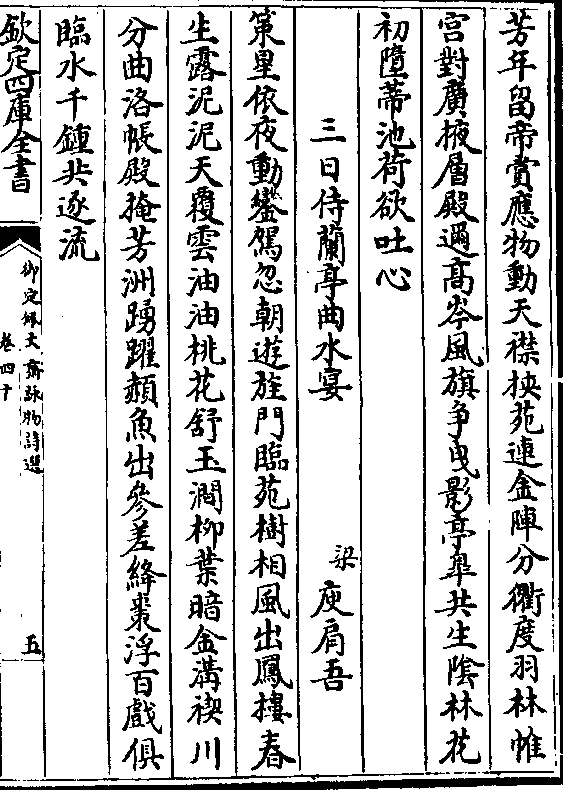 芳年留帝賞應物動天襟挾苑連金陣分衢度羽林帷
宮對廣掖層殿邇高岑風旗争曳影亭臯共生陰林花
初墮蒂池荷欲吐心
三日侍蘭亭曲水宴 梁 庾肩吾
策星依夜動鑾駕忽朝遊旌門臨苑樹相風出鳳樓春
生露泥泥天覆雲油油桃花舒玉澗柳葉暗金溝禊川
分曲洛帳殿掩芳洲踴躍頳魚出參差絳棗浮百戲俱
臨水千鍾共逐流
欽定四庫全書
御定佩文齋詠物詩選
卷四十
五